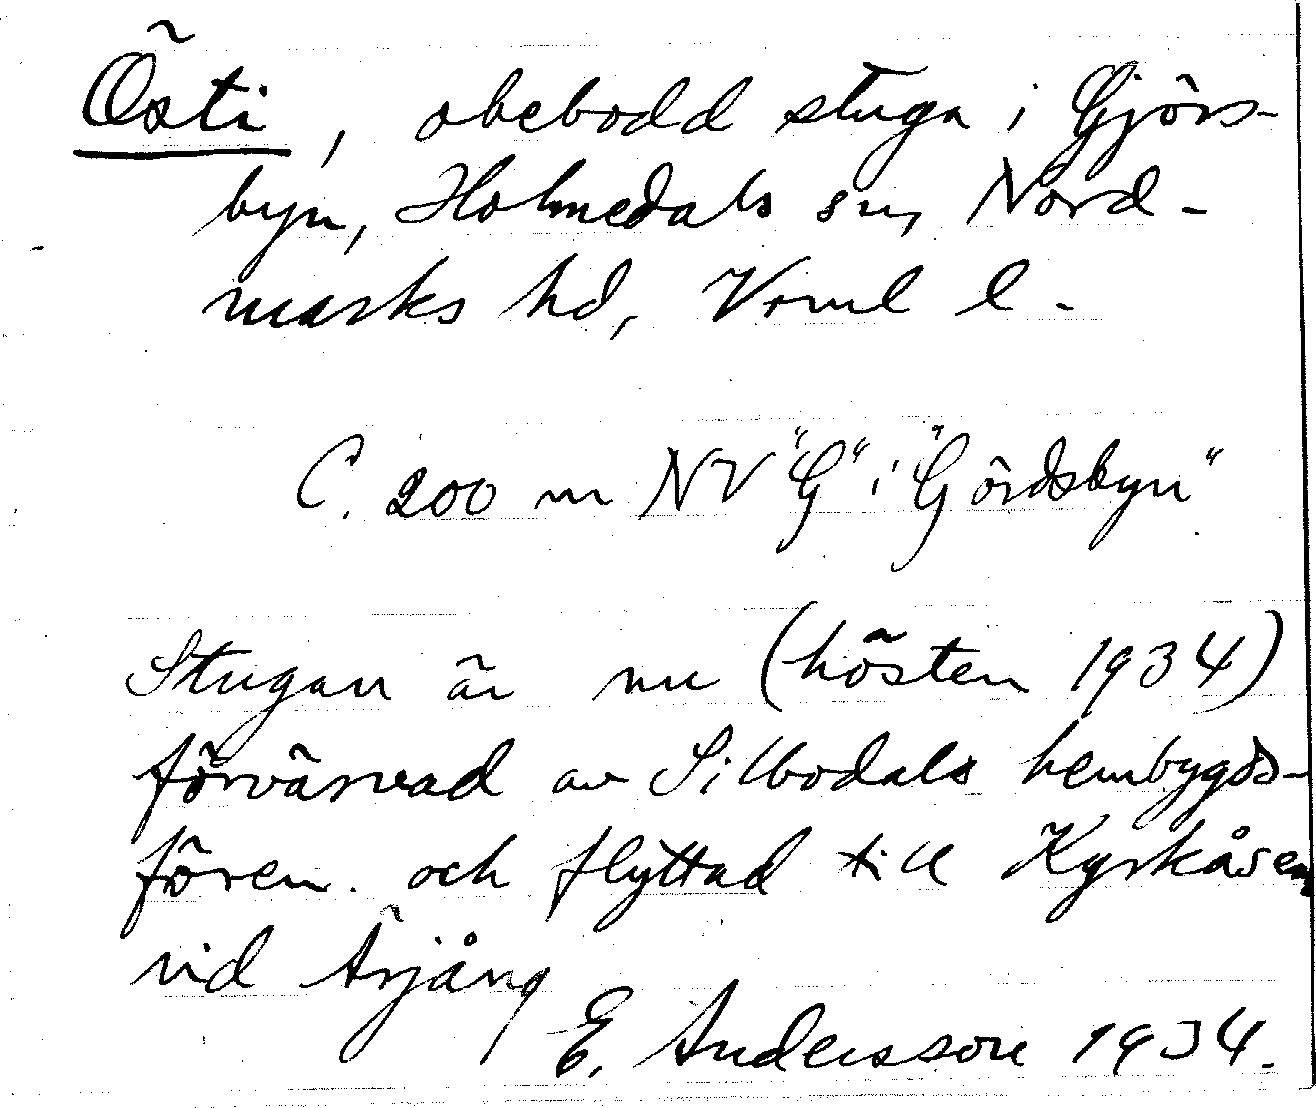 Östi, obebodd stuga i Gjörs-
byn, Holmedals sn, Nord-
marks hd, Vrml l.
C. 200 m NV "G" i "Gördsbyn"
Stugan är nu (hösten 1934)
förvärvad av Sillbodals hembygds-
fören. och flyttad till Kyrkåsen
vid Årjäng
E. Andersson 1934.